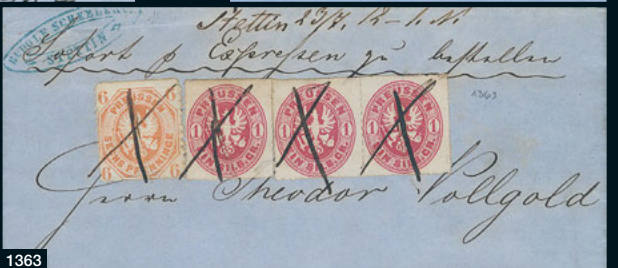 RUDOLF SCHEELE
STETTIN
Stettin 23/7. 12–1. N.
Sofort p Expressen zu bestellen
1363
6 PREUSSEN 6
SECHS PFENNINGE
6 6
PREUSSEN
1 1
EIN SILB. GR.
PREUSSEN
1 1
EIN SILB. GR.
PREUSSEN
1 1
EIN SILB. GR.
Herrn Theodor Vollgold
1363